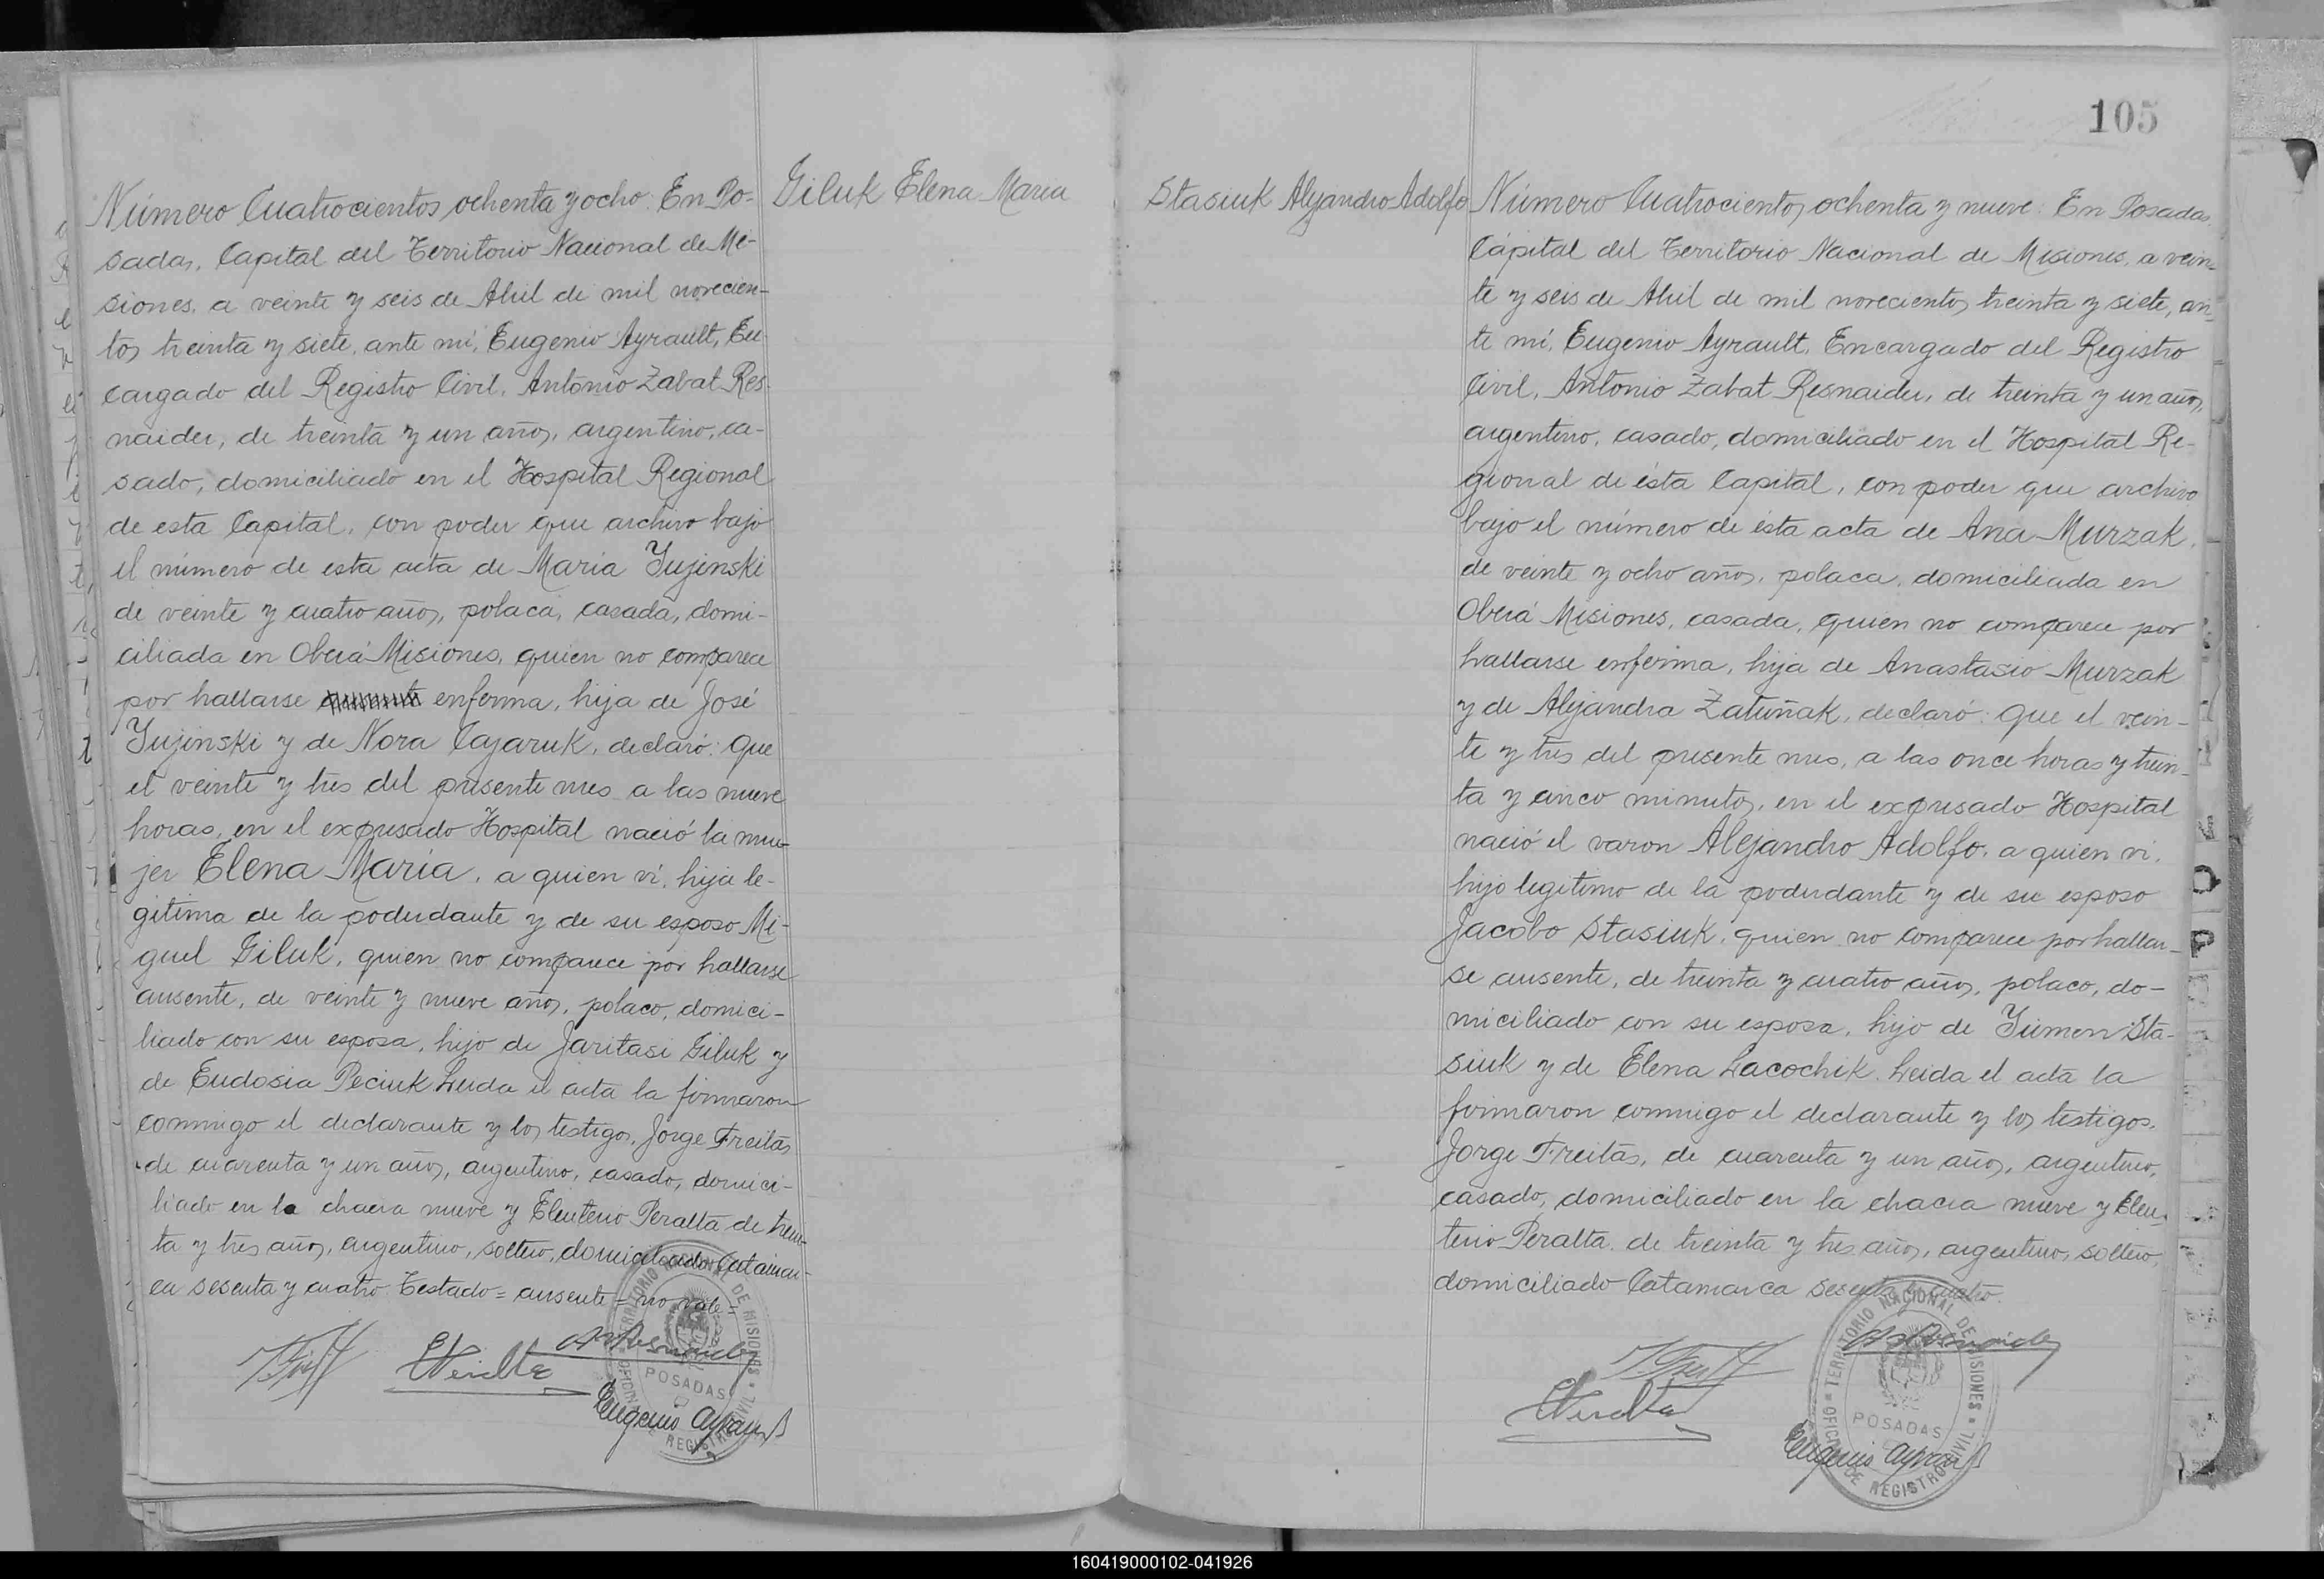 Número Cuatrocientos ochenta y ocho: En Po-
sadas, Capital del Territorio Nacional de Mi-
siones, a veinte y seis de Abril de mil novecien-
tos treinta y siete, ante mí, Eugenio Ayrault, En
cargado del Registro Civil, Antonio Zabat Res-
naider, de treinta y un años, argentino, ca-
sado, domiciliado en el Hospital Regional
de esta Capital, con poder que archivo bajo
el número de esta acta de María Jujinski
de veinte y cuatro años, polaca, casada, domi-
ciliada en Oberá Misiones, quien no comparece
por hallarse enferma, hija de José
Jujinski y de Nora Cajaruk, declaró: Que
el veinte y tres del presente mes a las nueve
horas, en el expresado Hospital nació la mu-
jer Elena María, a quien ví, hija le-
gitima de la poderdante y de su esposo Mi-
guel Giluk, quien no comparece por hallarse
ausente, de veinte y nueve años, polaco, domici-
liado con su esposa, hijo de Jaritasi Giluk y
de Eudosia Peciuk. Leida el acta la firmaron
conmigo el declarante y los testigos, Jorge Freitas
de cuarenta y un años, argentino, casado, domici-
liado en la chacra nueve y Eleuterio Peralta de trein-
ta y tres años, argentino, soltero, domiciliado Catamar-
ca sesenta y cuatro. Testado = ausente = no vale =
Eugenio Ayrault
TERRITORIO NACIONAL DE MISIONES
POSADAS
OFICINA DE REGISTRO CIVIL
Giluk Elena María
105
Stasiuk Alejandro Adolfo
Número Cuatrocientos ochenta y nueve: En Posadas
Cápital del Territorio Nacional de Misiones, a vein-
te y seis de Abril de mil novecientos treinta y siete, an-
te mí, Eugenio Ayrault, Encargado del Registro
Civil, Antonio Zabat Resnaider, de treinta y un años,
argentino, casado, domiciliado en el Hospital Re-
gional de ésta Capital, con poder que archivo
bajo el número de ésta acta de Ana Murzak,
de veinte y ocho años, polaca, domiciliada en
Oberá Misiones, casada, quien no comparece por
hallarse enferma, hija de Anastasio Murzak
y de Alejandra Zatuñak, declaró: Que el vein-
te y tres del presente mes, a las once horas y trein-
ta y cinco minutos, en el expresado Hospital
nació el varon Alejandro Adolfo, a quien vi,
hijo legitimo de la poderdante y de su esposo
Jacobo Stasiuk, quien no comparece por hallar-
se ausente, de treinta y cuatro años, polaco, do-
miciliado con su esposa, hijo de Jumen Sta-
siuk y de Elena Lacochik. Leida el acta la
firmaron conmigo el declarante y los testigos,
Jorge Freitas, de cuarenta y un años, argentino,
casado, domiciliado en la chacra nueve y Eleu-
terio Peralta, de treinta y tres años, argentino, soltero,
domiciliado Catamarca sesenta y cuatro.
Eugenio Ayrault
TERRITORIO NACIONAL DE MISIONES
POSADAS
OFICINA DE REGISTRO CIVIL
160419000102-041926